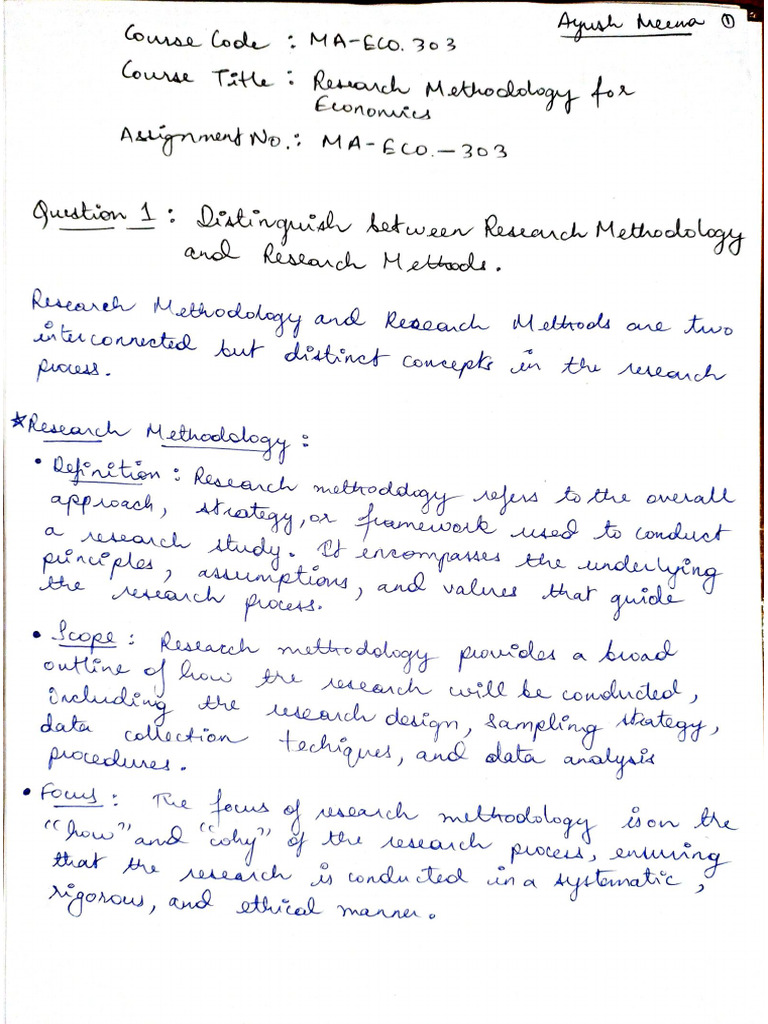 Ayush Meena ①
Course Code : MA-ECO. 303
Course Title : Research Methodology for
Economics
Assignment No.: MA-ECO.-303
Question 1 : Distinguish between Research Methodology
and Research Methods.
Research Methodology and Research Methods are two
interconnected but distinct concepts in the research
process.
☆Research Methodology :
• Definition : Research methodology refers to the overall
approach, strategy, or framework used to conduct
a research study. It encompasses the underlying
principles, assumptions, and values that guide
the research process.
• Scope : Research methodology provides a broad
outline of how the research will be conducted,
including the research design, sampling strategy,
data collection techiques, and data analysis
procedures.
• Focus : The focus of research methodology is on the
"how" and "why" of the research process, ensuring
that the research is conducted in a systematic,
rigorous, and ethical manner.